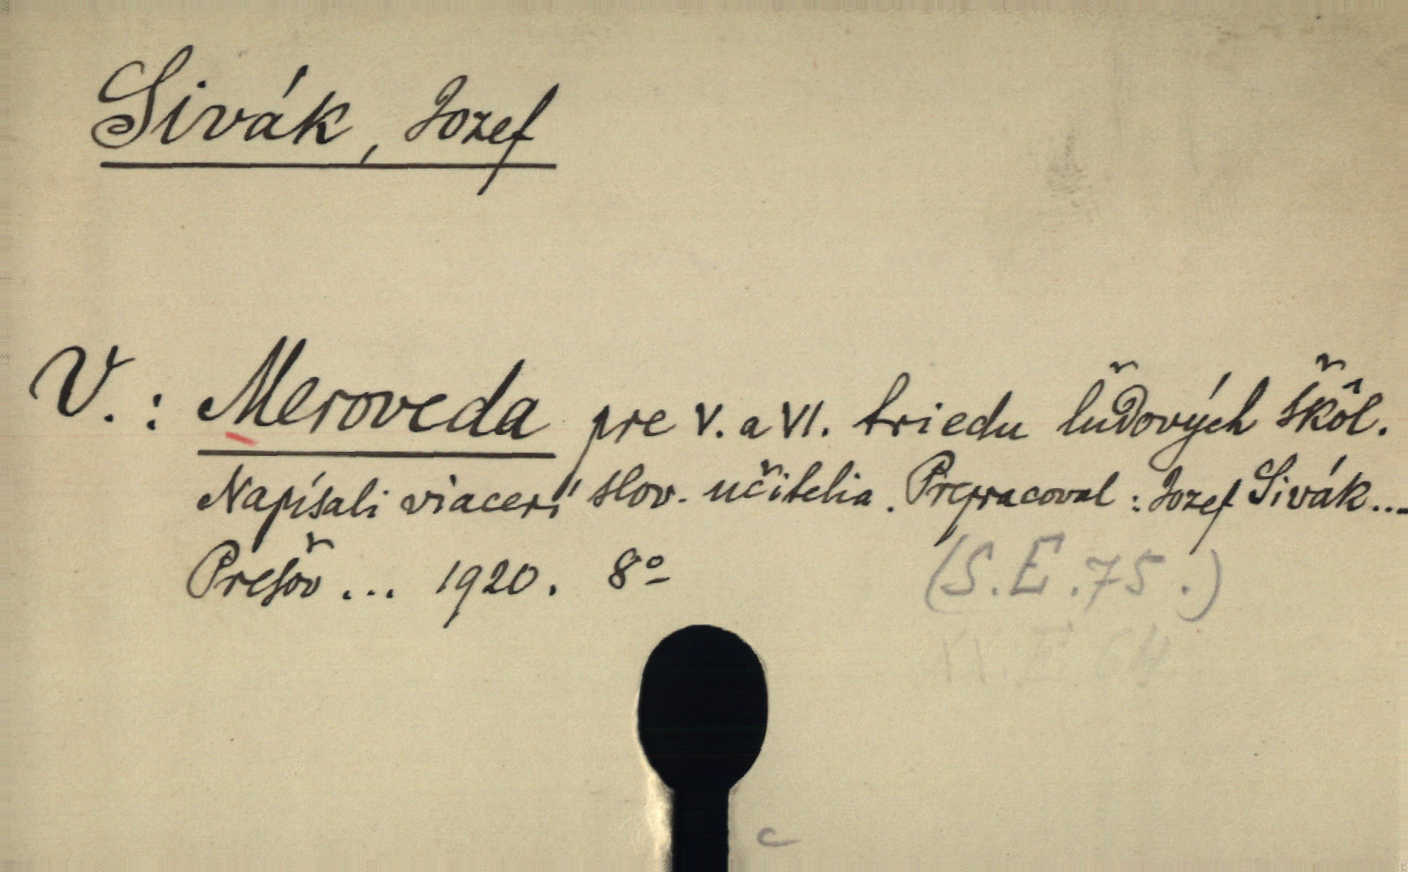 Sivák, Jozef
V. : Meroveda pre V. a VI. triedu ľudových škôl.
Napísali viacerí slov. učitelia. Prepracoval : Jozef Sivák...
Prešov ... 1920. 8º
(S.E.75.)
c